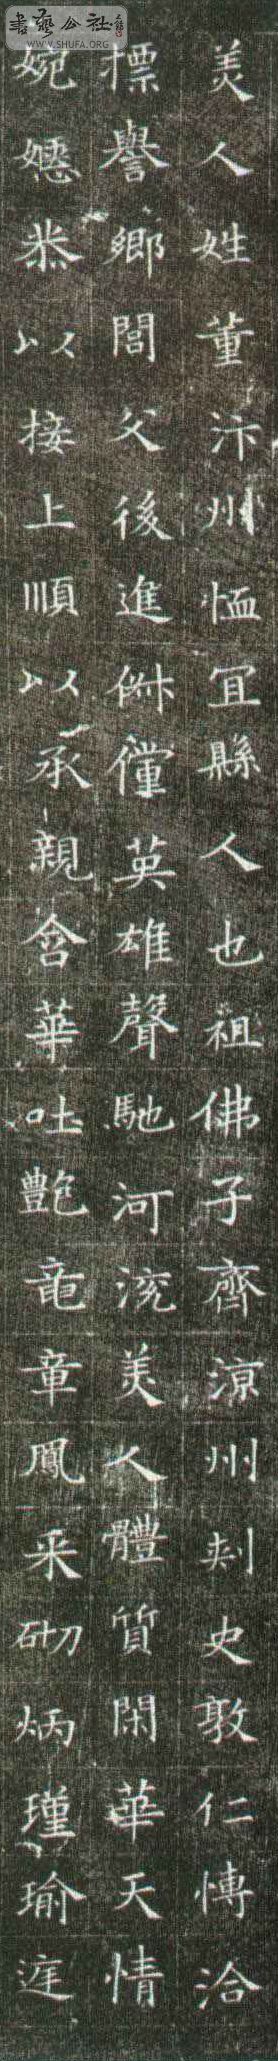 美人姓董汴州恤宜縣人也祖佛子齊涼州刺史敦仁博洽
標譽鄉閭父後進俶儻英雄聲馳河浣美人體質閑華天情
婉嬺恭以接上順以承親含華吐艷竜章鳳采砌炳瑾瑜庭
書藝公社
WWW.SHUFA.ORG